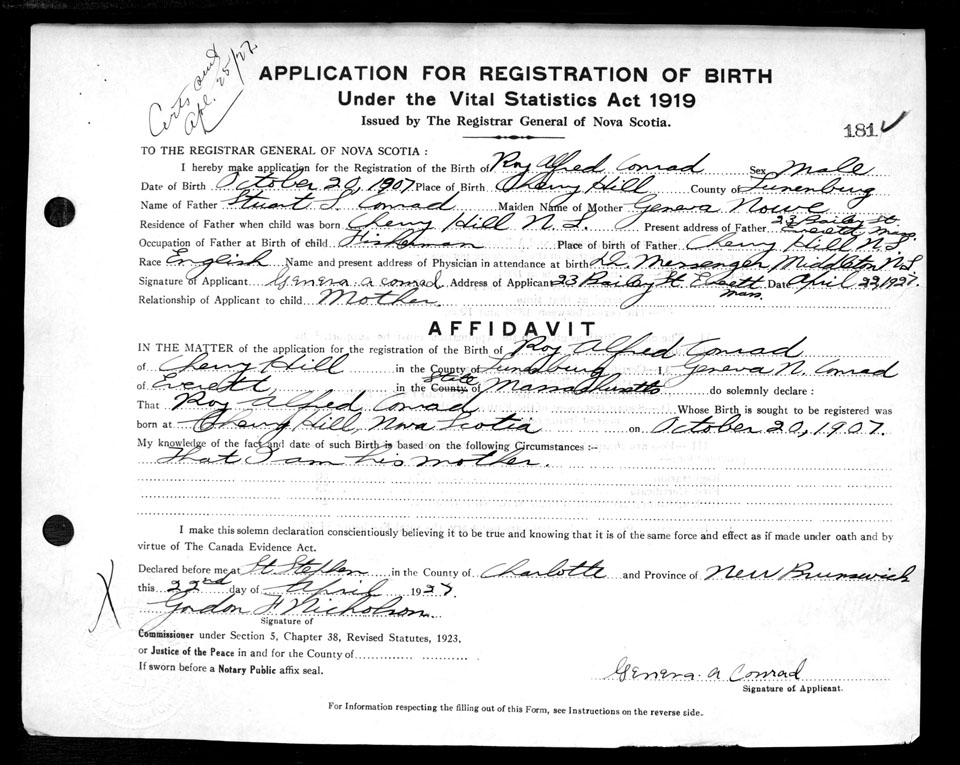 Certs sent
Apl. 25/27
APPLICATION FOR REGISTRATION OF BIRTH
Under the Vital Statistics Act 1919
Issued by The Registrar General of Nova Scotia.
1812
TO THE REGISTRAR GENERAL OF NOVA SCOTIA :
I hereby make application for the Registration of the Birth of Roy Alfred Conrad Sex Male
Date of Birth October 20, 1907 Place of Birth Cherry Hill County of Lunenburg
Name of Father Stuart S. Conrad Maiden Name of Mother Geneva Nowe
Residence of Father when child was born Cherry Hill N. S. Present address of Father 23 Bailey St. Everett Mass.
Occupation of Father at Birth of child Fisherman Place of birth of Father Cherry Hill N.S.
Race English Name and present address of Physician in attendance at birth Dr. Messenger, Middleton N.S.
Signature of Applicant Geneva a conrad Address of Applicant 23 Bailey St. Everett Mass. Date April 22, 1927.
Relationship of Applicant to child Mother.
AFFIDAVIT
IN THE MATTER of the application for the registration of the Birth of Roy Alfred Conrad
of Cherry Hill in the County of Lunenburg I, Geneva N. Conrad
of Everett, in the County State of Massachusetts do solemnly declare :
That Roy Alfred Conrad Whose Birth is sought to be registered was
born at Cherry Hill, Nova Scotia on October 20, 1907.
My knowledge of the fact and date of such Birth is based on the following Circumstances :–
that I am his mother.
I make this solemn declaration conscientiously believing it to be true and knowing that it is of the same force and effect as if made under oath and by
virtue of The Canada Evidence Act.
Declared before me at St. Stephen in the County of Charlotte and Province of New Brunswick
this 22nd day of April 1927.
Gordon H Nicholson.
Signature of
Commissioner under Section 5, Chapter 38, Revised Statutes, 1923.
or Justice of the Peace in and for the County of
If sworn before a Notary Public affix seal.
Geneva a Conrad
Signature of Applicant.
For Information respecting the filling out of this Form, see Instructions on the reverse side.